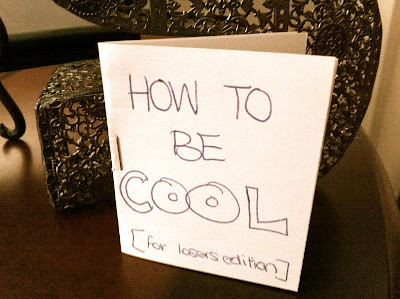 HOW TO
BE
COOL
[for losers edition]